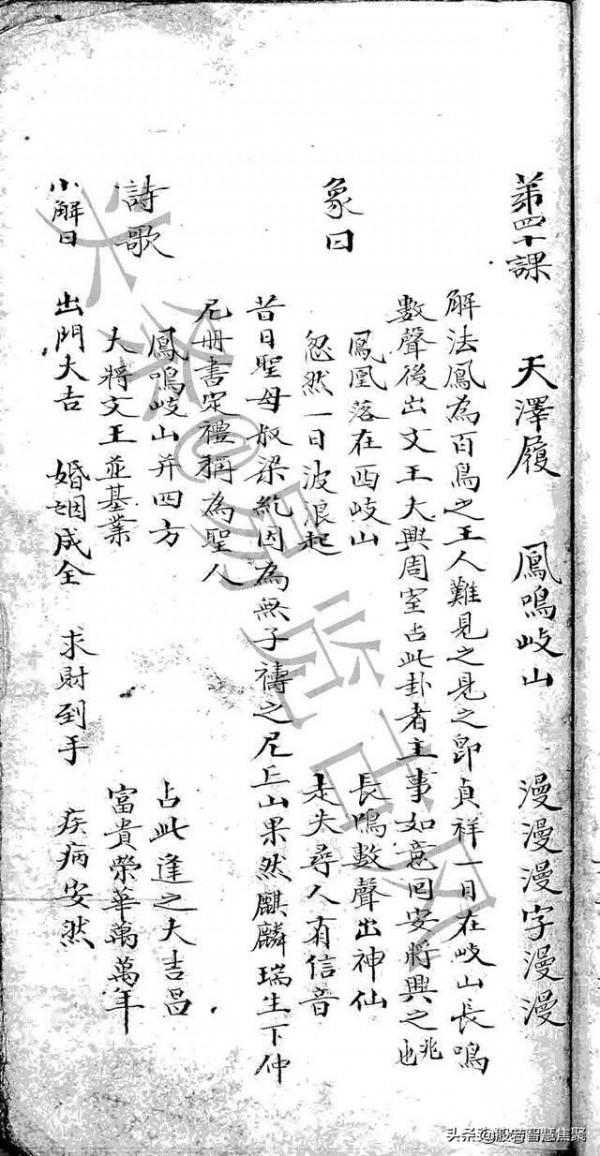 第四十課 天澤履 鳳鳴岐山 漫漫漫字漫漫
解法鳳為百鳥之王人難見之見之即貞祥一日在岐山長鳴
數聲後出文王大興周室占此卦者主事如意囘安將興之兆也
象曰 鳳凰落在西岐山 長鳴數聲出神仙
忽然一日波浪起 走失尋人有信音
昔日聖母叔梁紇因為無子禱之尼丘山果然麒麟瑞生下仲
尼冊書定禮稱為聖人
詩歌 鳳鳴岐山并四方 占此逢之大吉昌
大將文王並基業 富貴榮華萬萬年
小解曰 出門大吉 婚姻成全 求財到手 疾病安然
头条@易览古风
头条@般若智慧焦聚